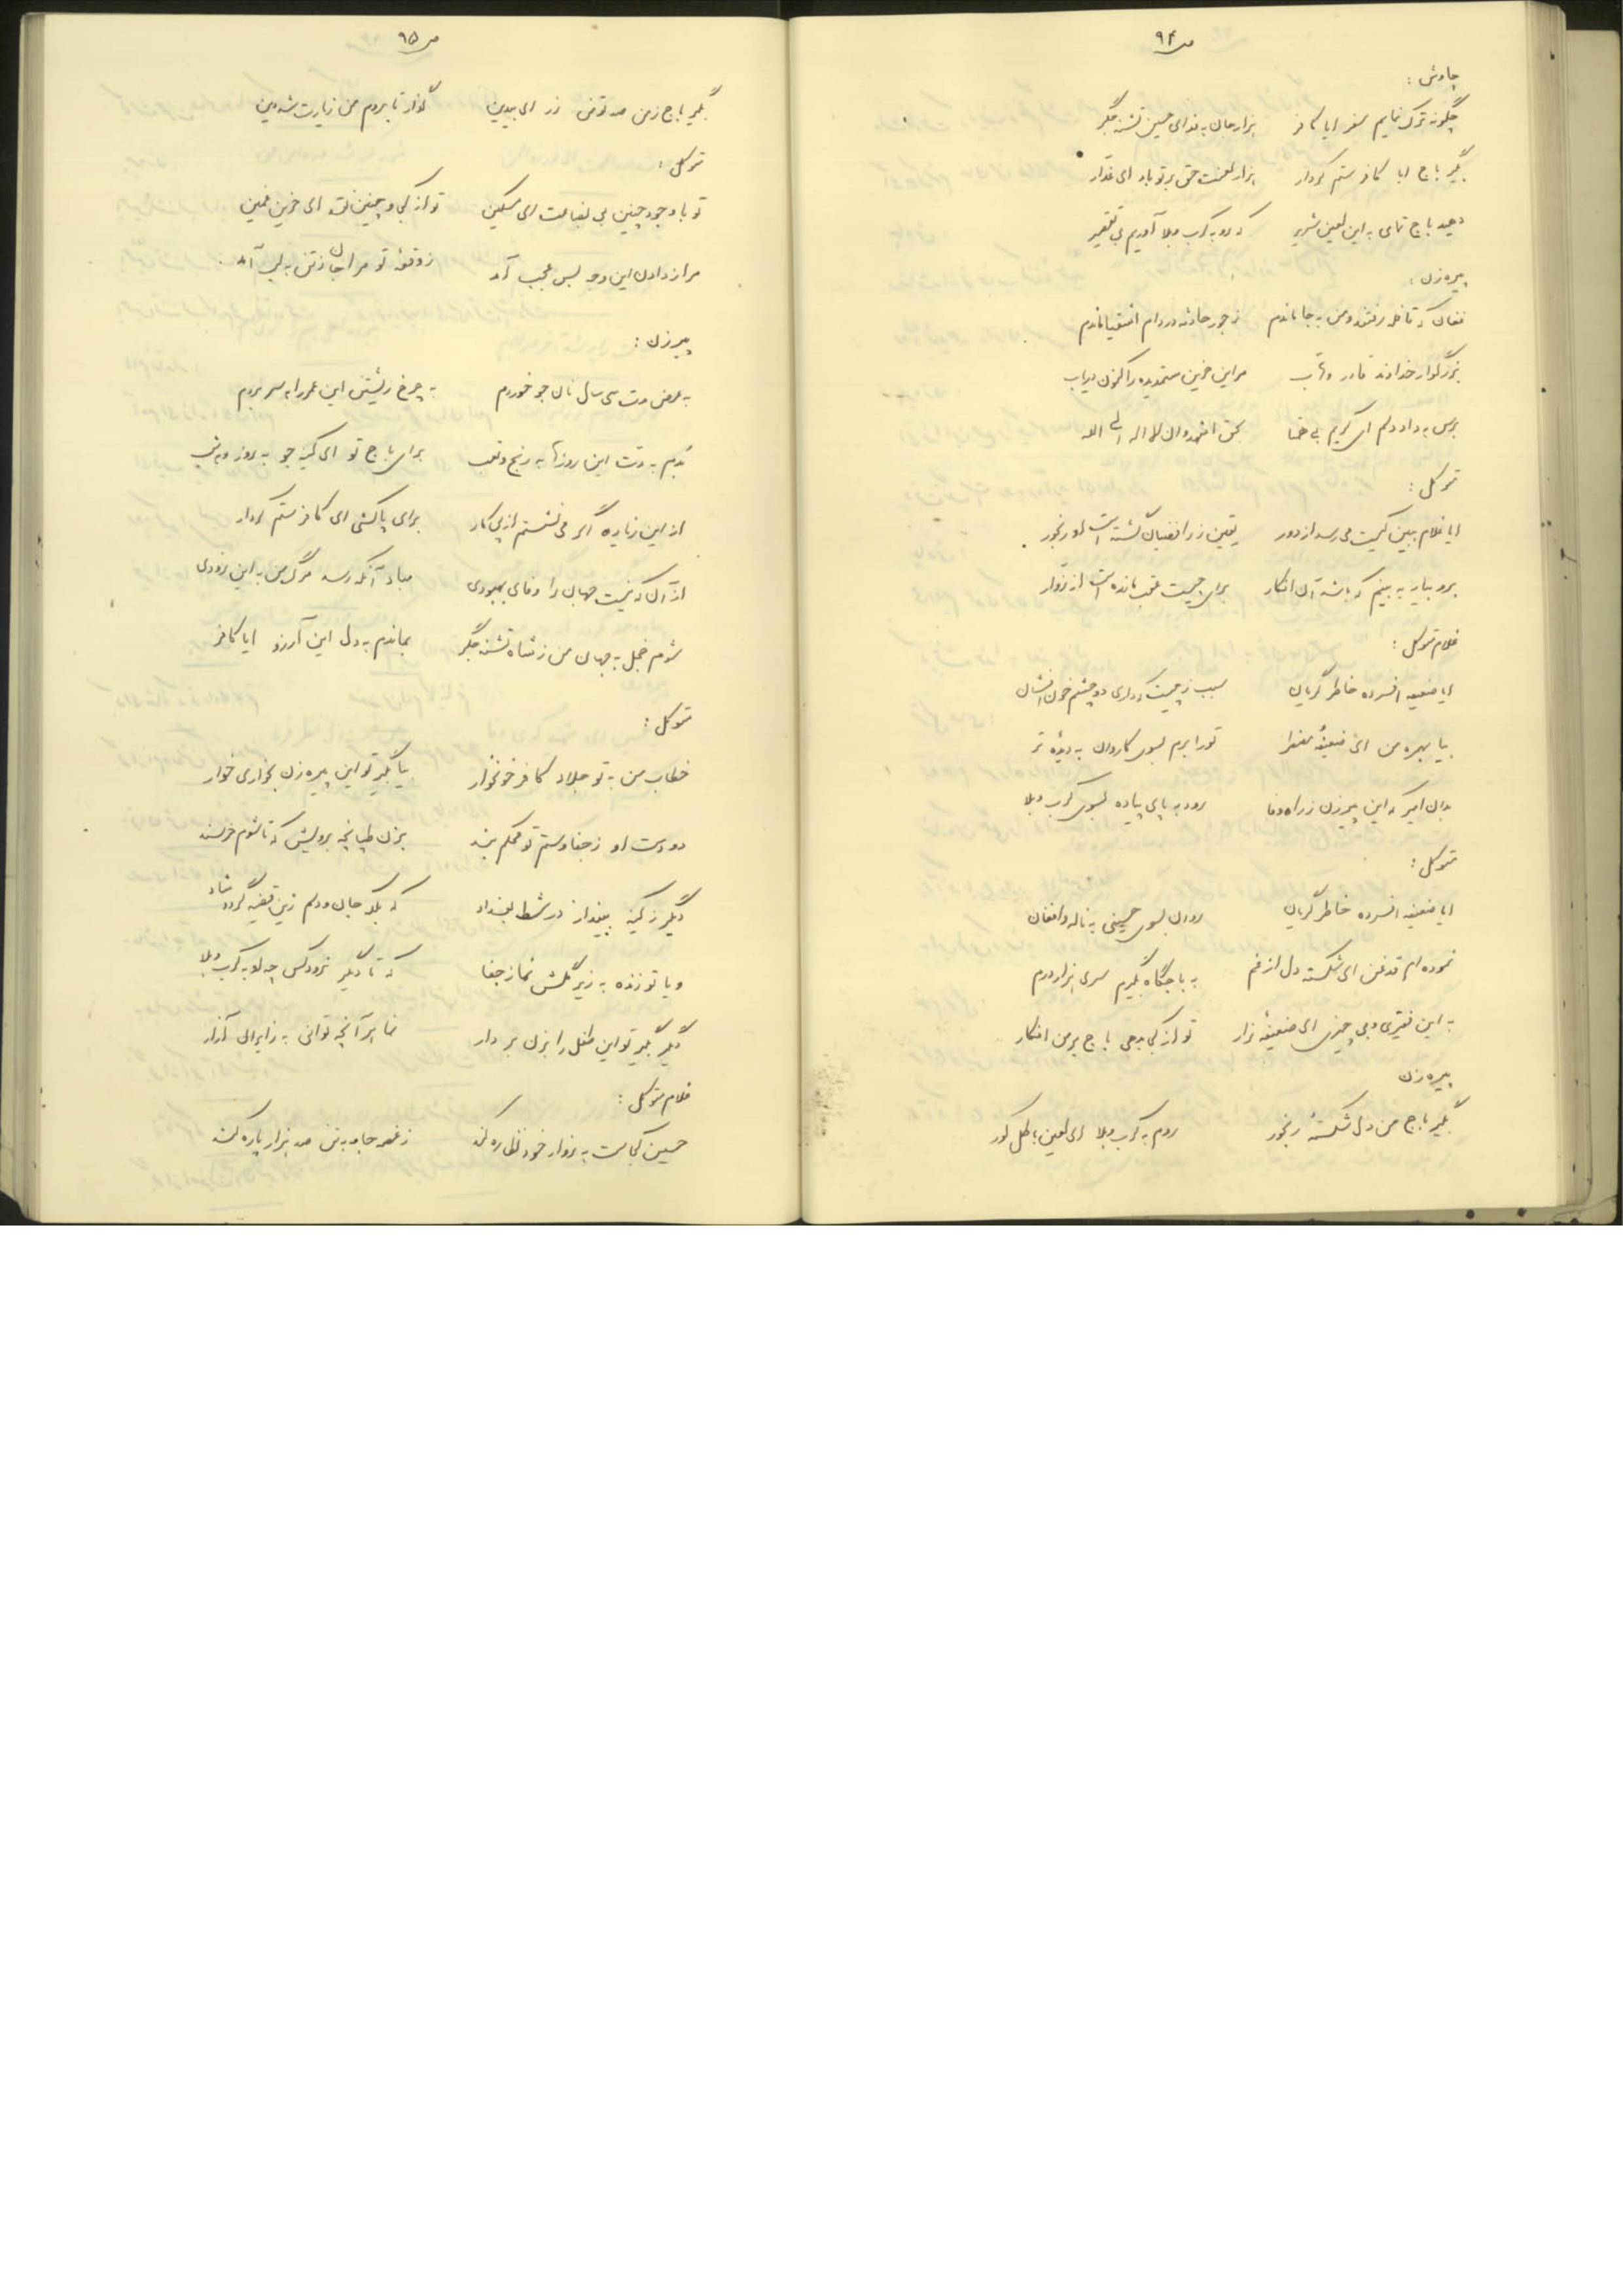 ص ۹۴
چاوش :
چگونه ترک نمایم سفر ایا کافر هزار جان به فدای حسین تشنه جگر
بگیر باج ایا کافر ستم کردار هزار لعنت حق بر تو باد ای غدّار
دهید باج تمامی به این لعین شریر که رو به کرب و بلا آوریم بی تقصیر
پیره زن :
فغان که قافله رفتند و من به جا ماندم ز جور حادثه در دام اشقیا ماندم
بزرگوار خداوند قادر وهّاب مر این حزین ستمدیده را کنون دریاب
برس به داد دلم ای کریم بی همتا بحق اشهد و ان لا اله الی الله
متوکل :
ایا غلام ببین کیست می رسد از دور یقین ز رافضیان گشته است او رنجور
برو بیار به بینم که باشد آن افکار برای چیست عقب مانده است از زوّار
غلام متوکل :
ایا ضعیفه افسرده خاطر گریان سبب ز چیست که داری دو چشم خون افشان
بیا بهمره من ای ضعیفهٔ مضطر تو را برم بسوی کاروان به دیدهٔ تر
بدان امیر که این پیرزن ز راه وفا رود به پای پیاده بسوی کرب و بلا
متوکل :
ایا ضعیفه افسرده خاطر گریان روان بسوی حسینی به ناله و افغان
نموده ام قدغن ای شکسته دل از غم به باجگاه بگیرم سری هزار درم
به این فقیری و بی چیزی ای ضعیفهٔ زار تو از کجا بدهی باج بر من افکار
پیره زن
بگیر باج من دل شکستهٔ رنجور روم به کرب و بلا ای لعین باطل کور
ص ۹۵
بگیر باج ز من صد تومن زر ای بیدین گذار تا بروم من زیارت شه دین
متوکل :
تو با وجود چنین بی بضاعت ای مسکین تو از کجا و چنین نقد ای حزین غمین
مرا ز دادن این وجه بس عجب آمد ز وقفهٔ تو مرا جان ز تن به لب آمد
پیرزن :
به عرض مدت سی سال نان جو خوردم به چرخ ریشتن این عمر را به سر بردم
ندیم به مدت این روزها به رنج و تعب برای باج تو ای کینه جو به روز و به شب
از این زیاده اگر می نشستم از پی کار برای پاکشی ای کافر ستم کردار
از آن که نیست جهان را وفای بهبودی مباد آنکه رسد مرگ من به این زودی
شوم خجل به جهان من ز شاه تشنه جگر بماندم به دل این آرزو ایا کافر
متوکل :
خطاب من به تو جلاد کافر خونخوار بیا بگیر تو این پیره زن بخواری خوار
دو دست او ز جفا و ستم تو محکم بند بزن طپانچه برویش که تا شوم خرسند
دیگر ز کینه بینداز در شط بغداد که بلکه جان و دلم زین قضیه گردد شاد
و یا تو زنده به زیر گلش نما ز جفا که تا دیگر نرود کس چه او به کرب و بلا
دیگر بگیر تو این طفل را بزن بر دار نما هر آنچه توانی به زایران آزار
غلام متوکل :
حسین کجاست به زوار خود نظاره کند ز غصه جامه به تن صد هزار پاره کند